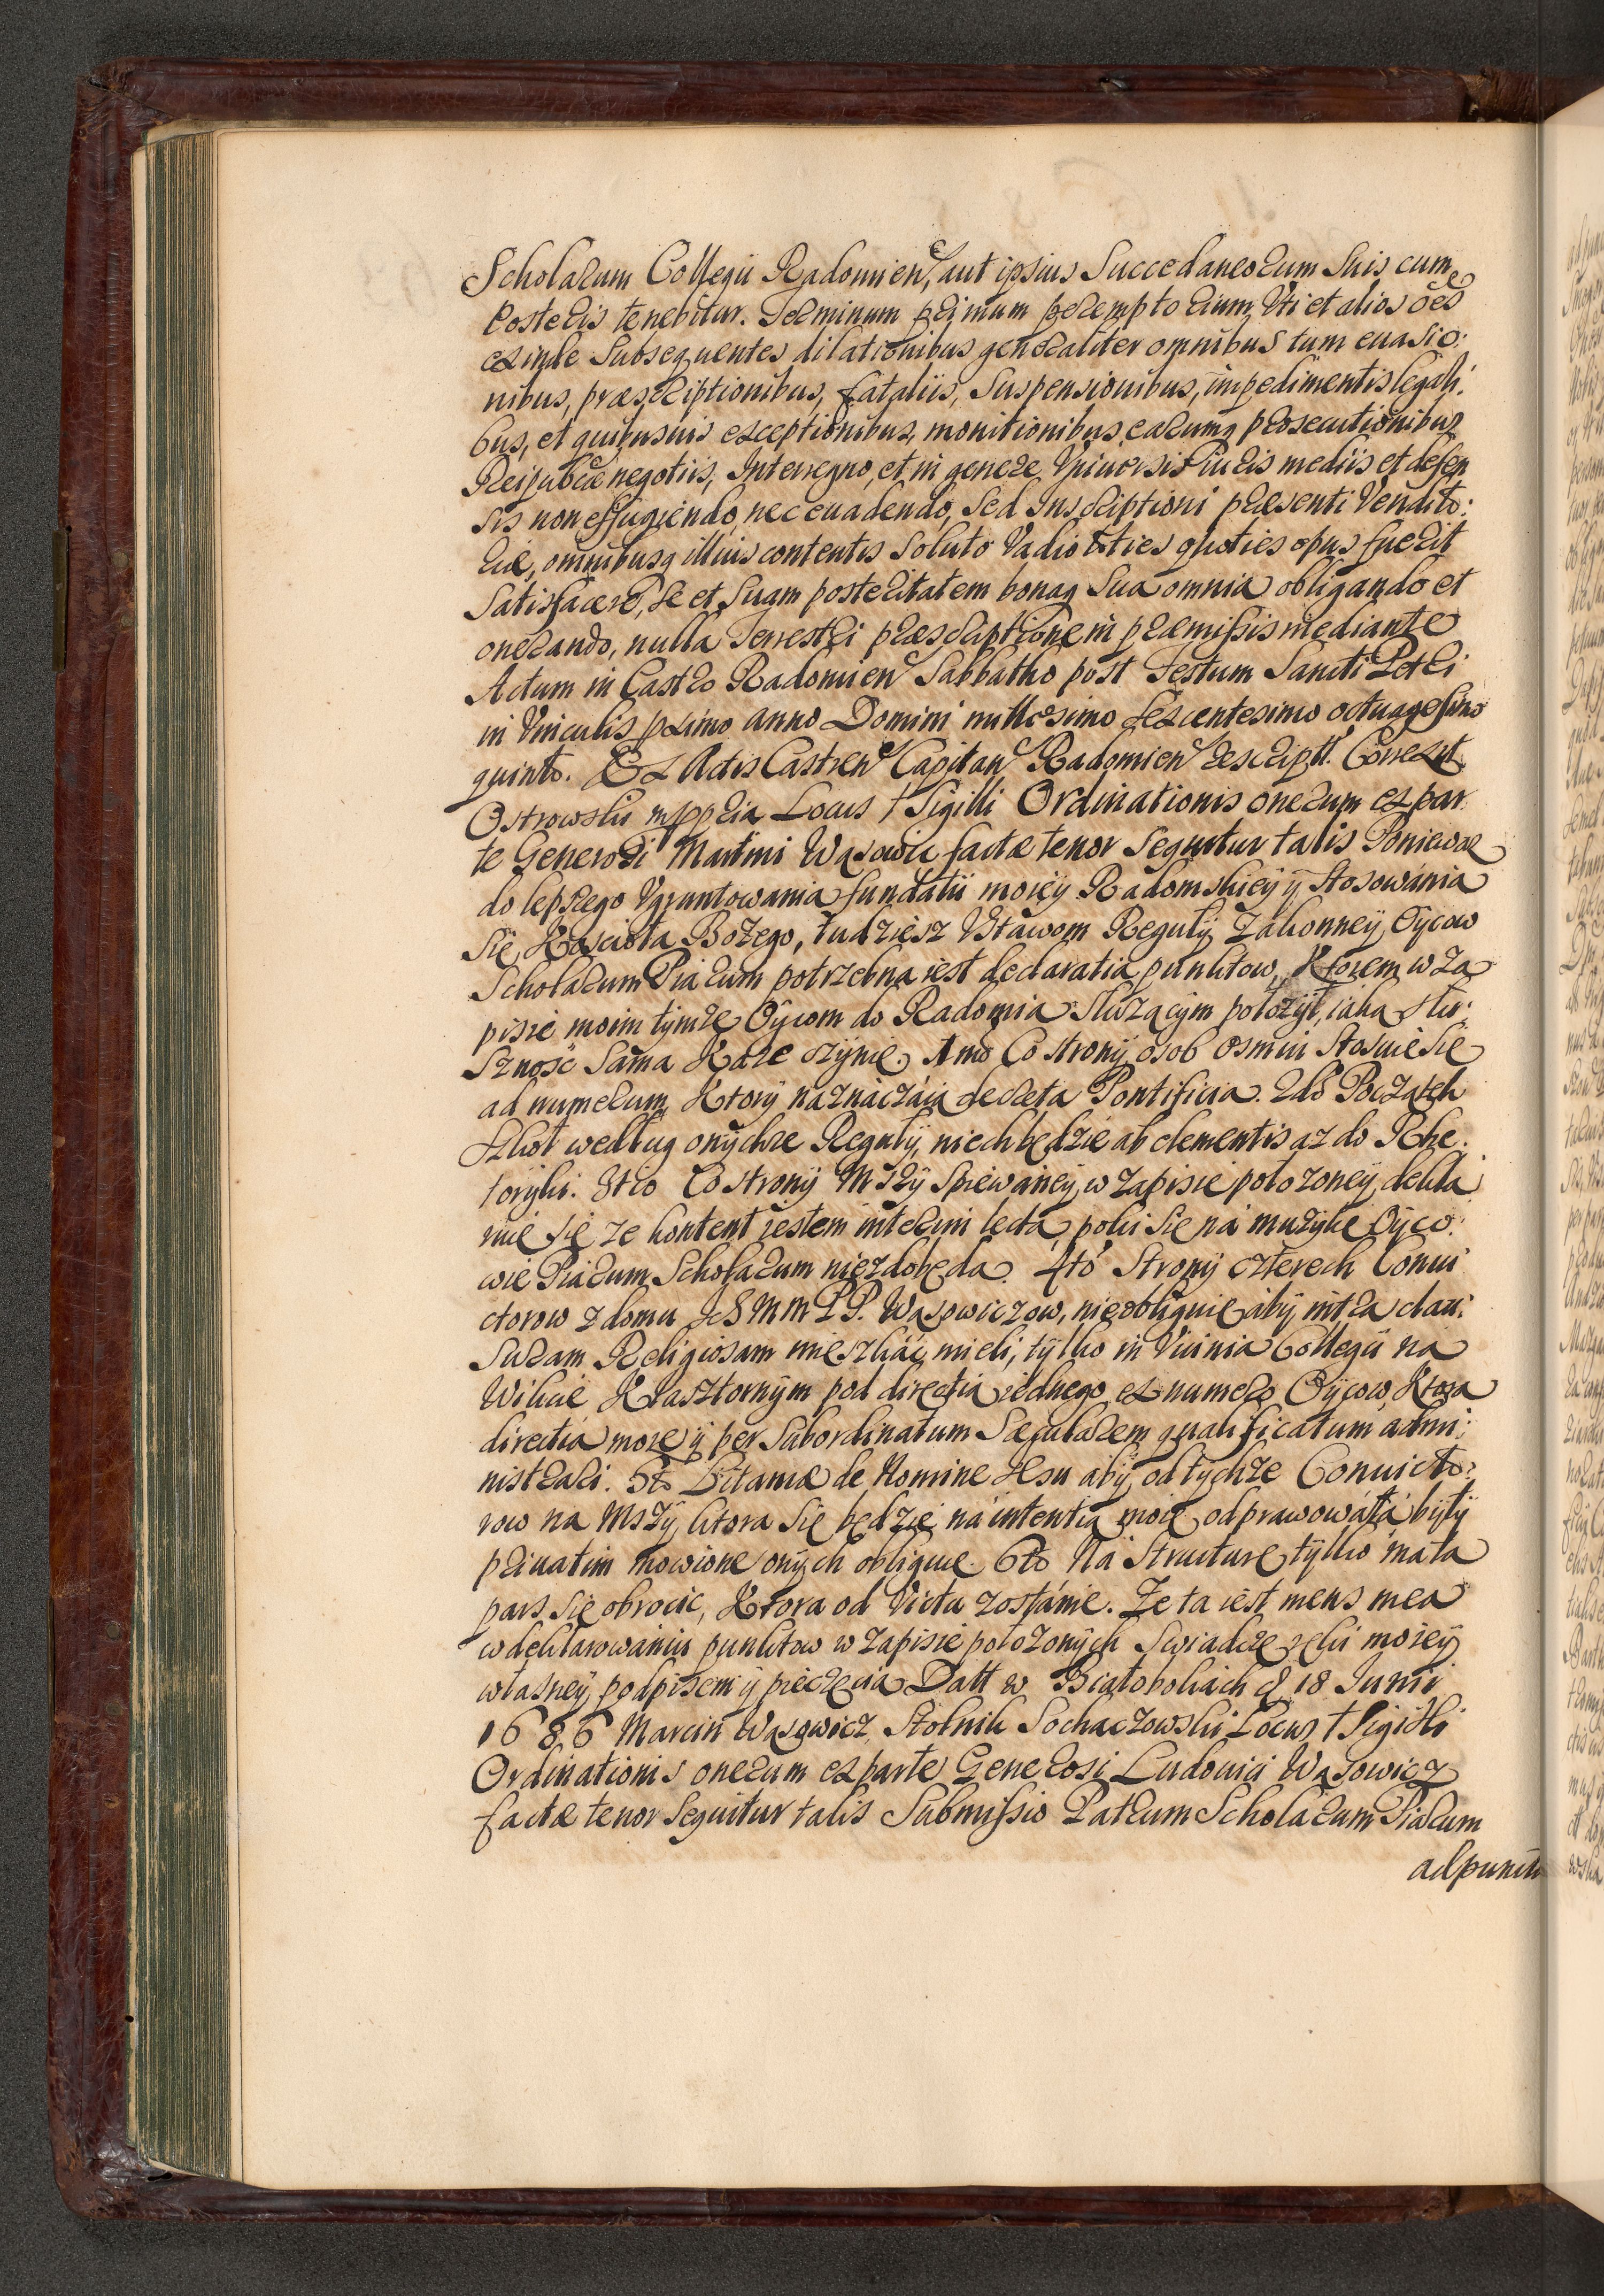 Scholarum Collegii Radomien, aut ipsius Succedaneorum Suis cum
Posteris tenebitur. Terminum primum peremptorium Uti et alios oēs
exinde Subsequentes dilationibus generaliter omnibus tum euasio:
nibus, præscriptionibus, fataliis, Suspensionibus, impedimentis legali:
bus, et quibusuis exceptionibus, monitionibus, earumq prosecutionibus
Reipubcæ negotiis, Interregno, et in genere Vniuersis Iuris mediis et defen
sis non effugiendo, nec euadendo, Sed Inscriptioni præsenti Vendito:
riæ, omnibusq illius contentis Soluto Vadio toties quoties opus fuerit
Satisfacere, Se et Suam posteritatem bonaq Sua omnia obligando et
onerando, nulla Terrestri præscriptione in præmissis mediante
Actum in Castro Radomien Sabbatho post Festum Sancti Petri
in Vinculis primo Anno Domini millesimo sexcentesimo octuagesimo
quinto. Ex Actis Castren Capitan Radomien rescript. Correxit
Ostrowski mppria Locus † Sigilli Ordinationis onerum ex par
te Generosi Martini Wąsowicz factæ tenor Sequitur talis Poniewaz
do lepszego Vgruntowania fundatii moiey Radomskiey y Stosowánia
Się Kościoła Bożego, tudziesz Vstawom Reguły Zakonney Oycow
Scholarum Piarum potrzebna iest declaratia punktow, Ktorem w Za
pisie moim tymze Oycom do Radomia Sluzącym położył, iaka Slu:
Sznosc Sama Kaze czynię, 1mo Co strony osob osmiu Stosuie Się
ad numerum, Ktory náznáczáią decreta Pontificia. 2do Początek
Szkoł według onychze Reguły, niech będzie ab elementis az do Rhe.
toryki. 3tio Co strony Mszy Spiewáney, w zapisie położoney, dekla
ruię się ze kontent iestem interim lectą, poki Się ná muzykę Oyco:
wie Piarum Scholarum niezdobędą. 4tó Strony czterech Conui
ctorow z domu JchMM PP. Wąsowiczow, nieobliguię áby intra clau:
Suram Religiosam mieszkáć mieli, tylko in Vicinia Collegij na
Wikcie Klasztornym pod directią iednego ex numero Oycow, Ktora
directia moze y per Subordinatum Sæcularem qualificatum admi:
nistrari. 5to Litaniæ de Nomine Iesu aby od tychze Conuicto:
row na Mszy, ktora Się będzie ná intentią moię odprawowáłá były
priuatim mowione onych obliguię. 6to Ná Structurę tylko máła
pars Się obrocic, Ktora od Victu zostánie. Ze ta iest mens mea
w deklarowaniu punktow w zapisie położonych Swiadczę ręki moiey
własney podpisem y pieczęcią Datt w Białobokach d 18 Junii
1686 Marcin Wąsowicz Stolnik Sochaczowski Locus † Sigilli
Ordinationis onerum ex parte Generosi Ludouici Wąsowicz
factæ tenor Sequitur talis Submissio Patrum Scholarum Piarum
ad puncta